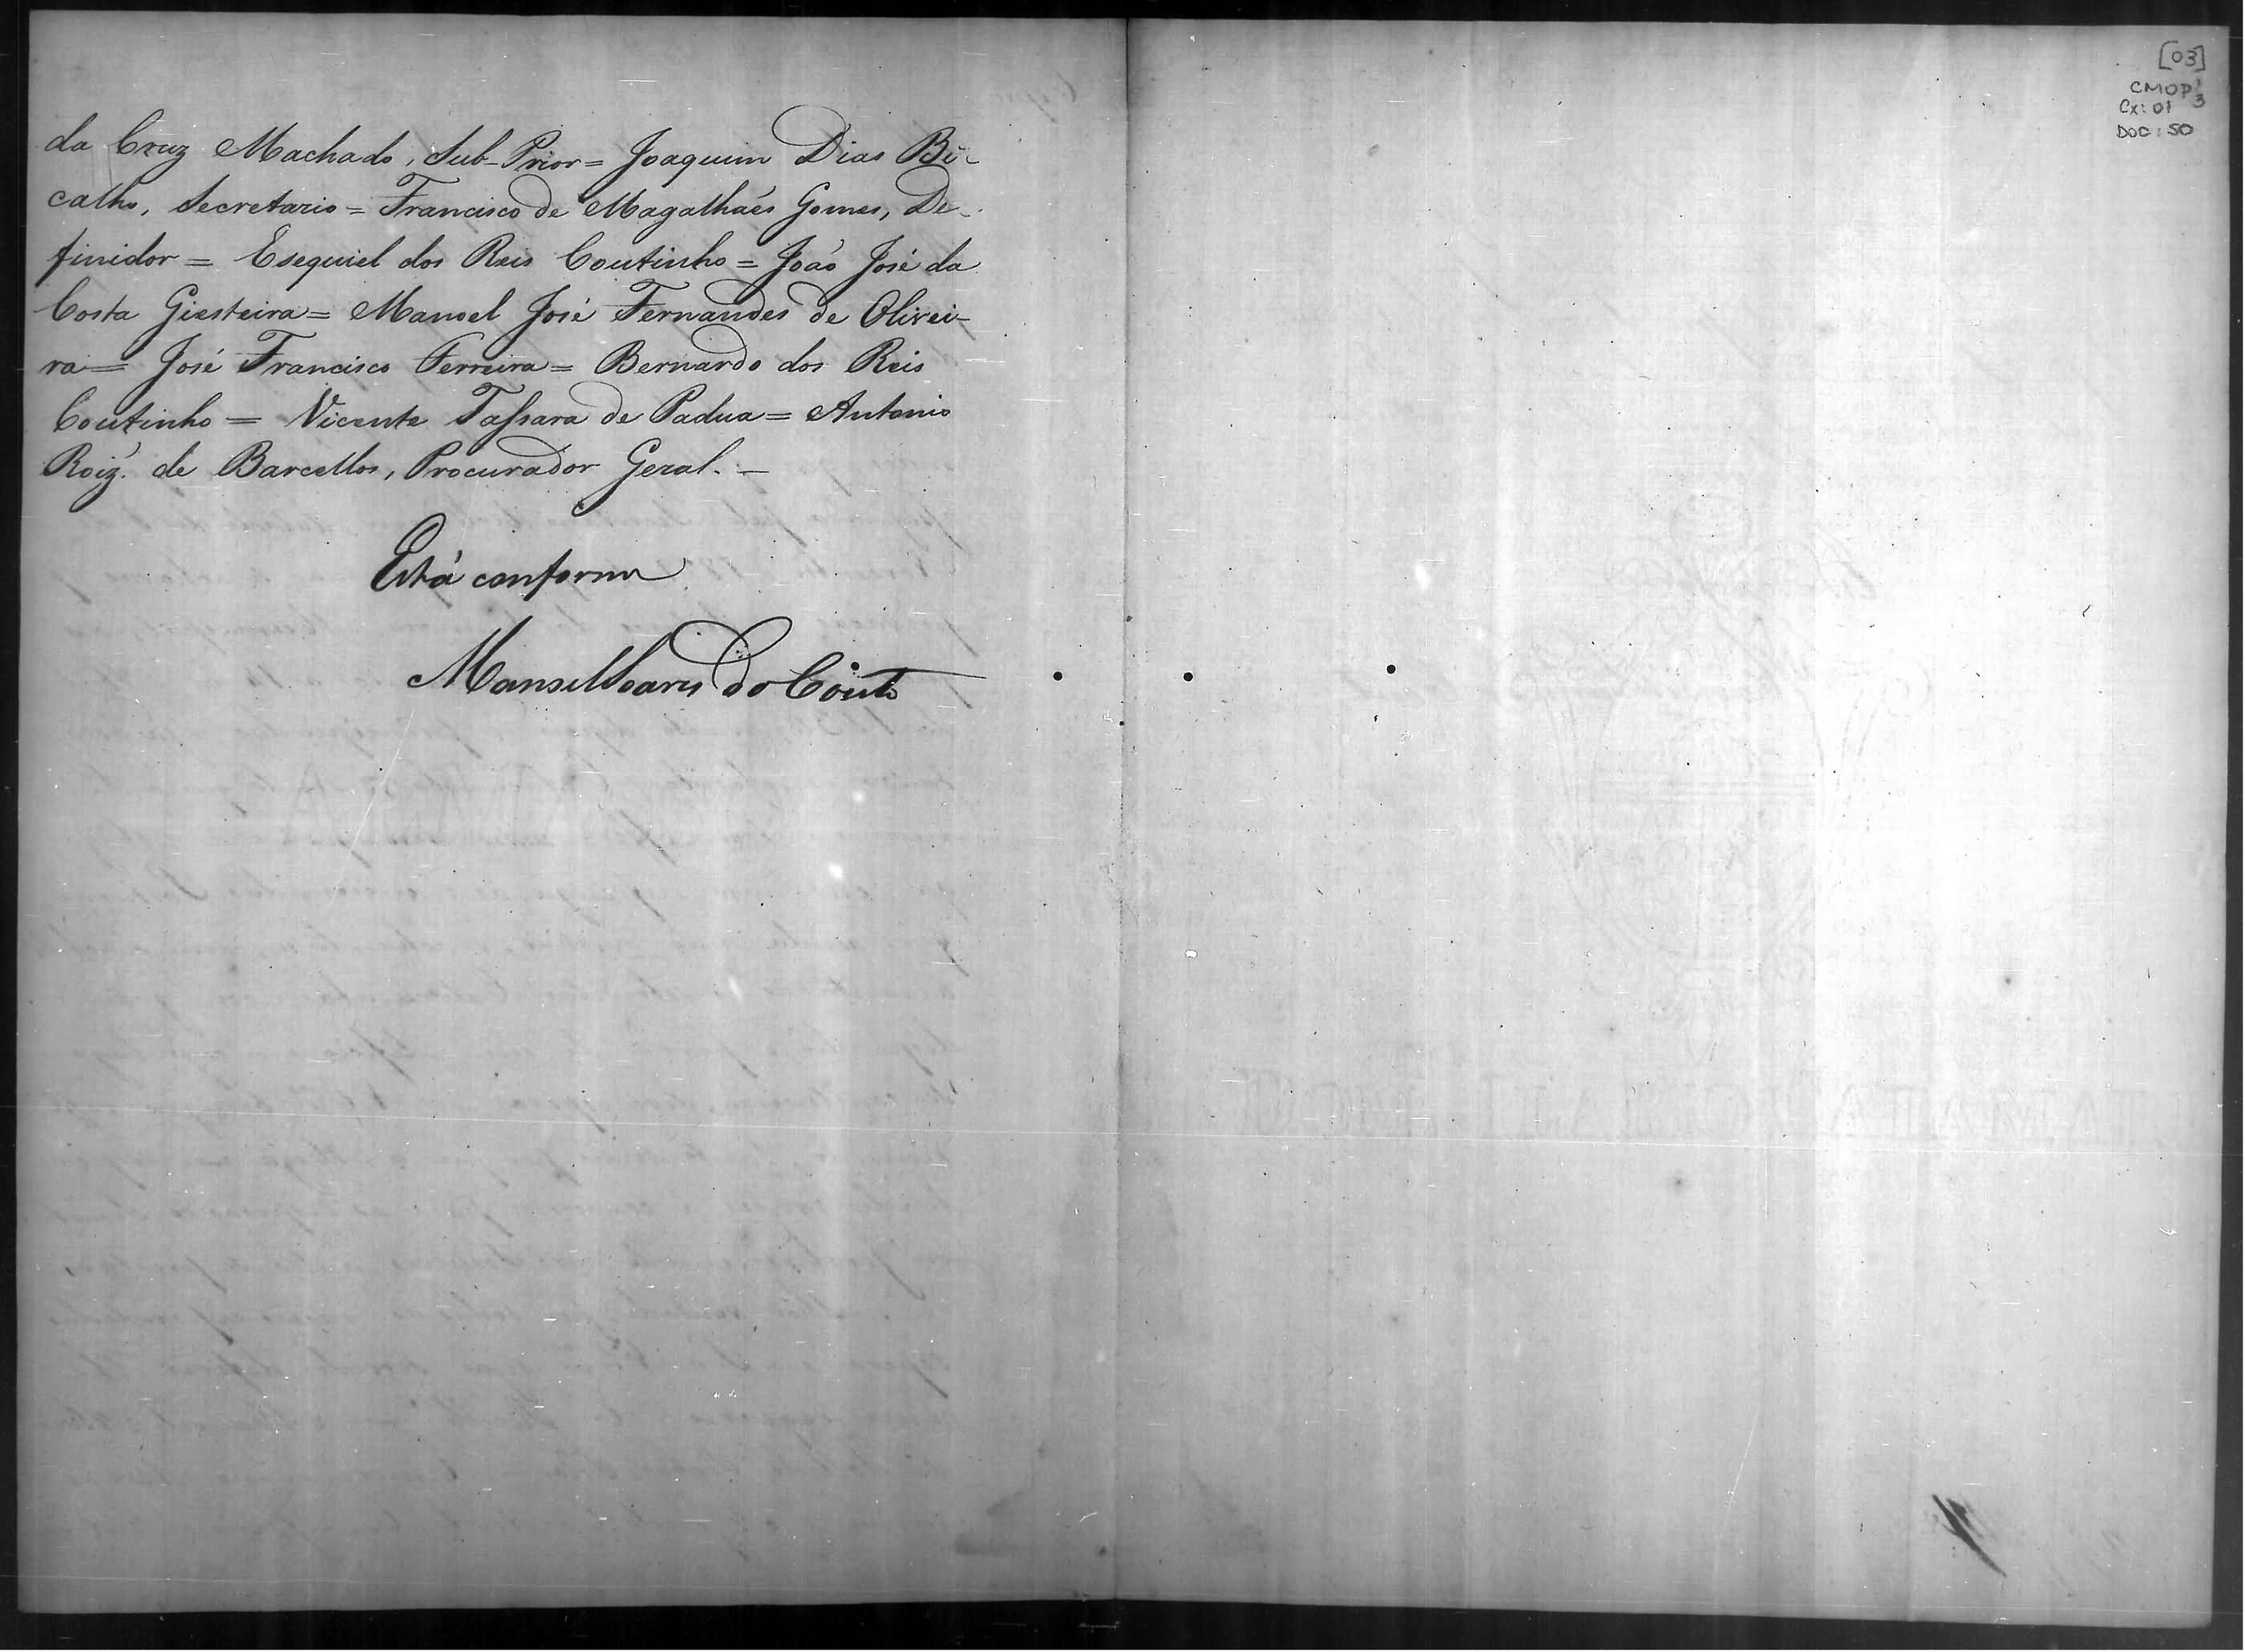 da Cruz Machado, Sub-Prior = Joaquim Dias Bi-
calho, Secretario = Francisco de Magalhães Gomes, De-
finidor = Esequiel dos Reis Coutinho = João José da
Costa Giesteira = Manoel José Fernandes de Olivei-
ra = José Francisco Ferreira = Bernardo dos Reis
Coutinho = Vicente Tassara de Padua = Antonio
Roiz. de Barcellos, Procurador Geral. —
Está conforme
Manoel Soares do Couto
[03]
CMOP
3
Cx: 01
DOC: 50